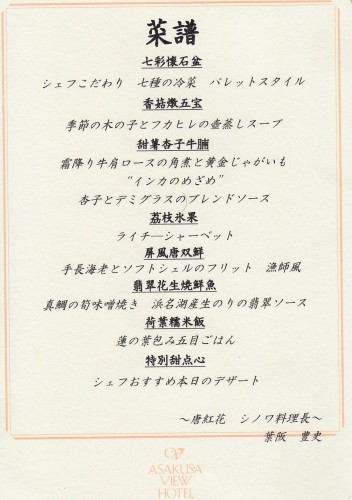 菜譜
七彩懐石盆
シェフこだわり　七種の冷菜　パレットスタイル
香菇燉五宝
季節の木の子とフカヒレの壷蒸しスープ
甜薯杏子牛腩
霜降り牛肩ロースの角煮と黄金じゃがいも
“インカのめざめ”
杏子とデミグラスのブレンドソース
荔枝氷果
ライチーシャーベット
屏風唐双鮮
手長海老とソフトシェルのフリット　漁師風
翡翠花生焼鮮魚
真鯛の筍味噌焼き　浜名湖産生のりの翡翠ソース
荷葉糯米飯
蓮の葉包み五目ごはん
特別甜点心
シェフおすすめ本日のデザート
～唐紅花　シノワ料理長～
葉阪　豊史
ASAKUSA
VIEW
HOTEL